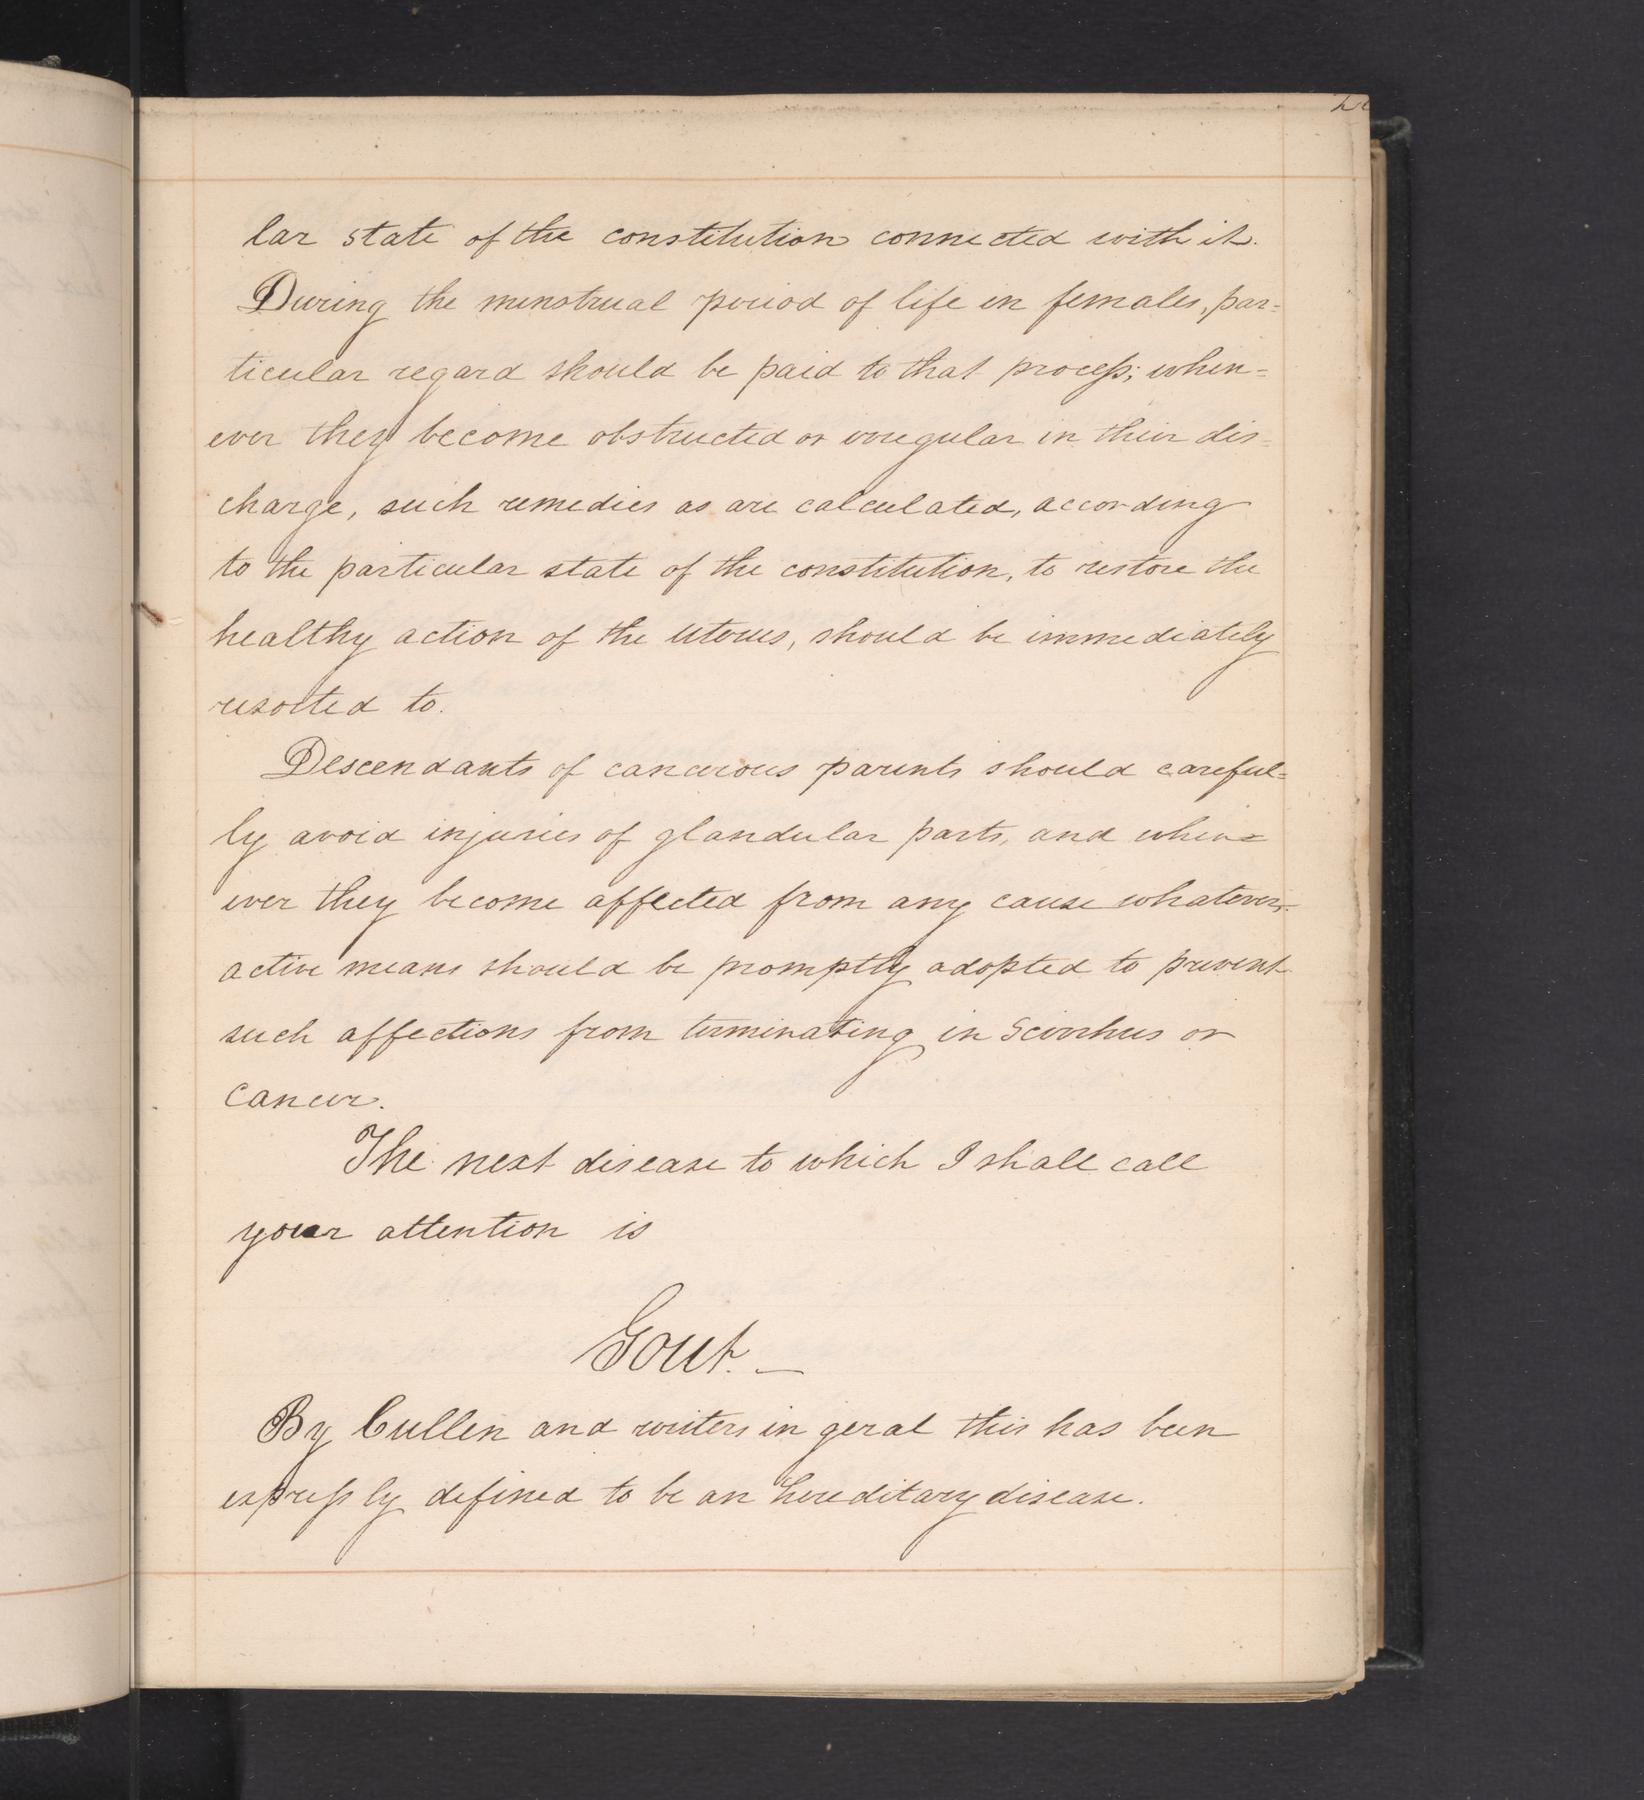 lar state of the constitution connected with it.
During the menstrual period of life in females, par=
ticular regard should be paid to that process; when=
ever they become obstructed or irregular in their dis-
charge, such remedies as are calculated, according
to the particular state of the constitution, to restore the
healthy action of the uterus, should be immediately
resorted to.
Descendants of cancerous parents should careful=
ly avoid injuries of glandular parts, and when=
ever they become affected from any cause whatever,
active means should be promptly adopted to prevent
such affections from terminating in Scirrhus or
Cancer.
The next disease to which I shall call
your attention is
Gout. —
By Cullen and writers in geral this has been
expressly defined to be an hereditary disease.